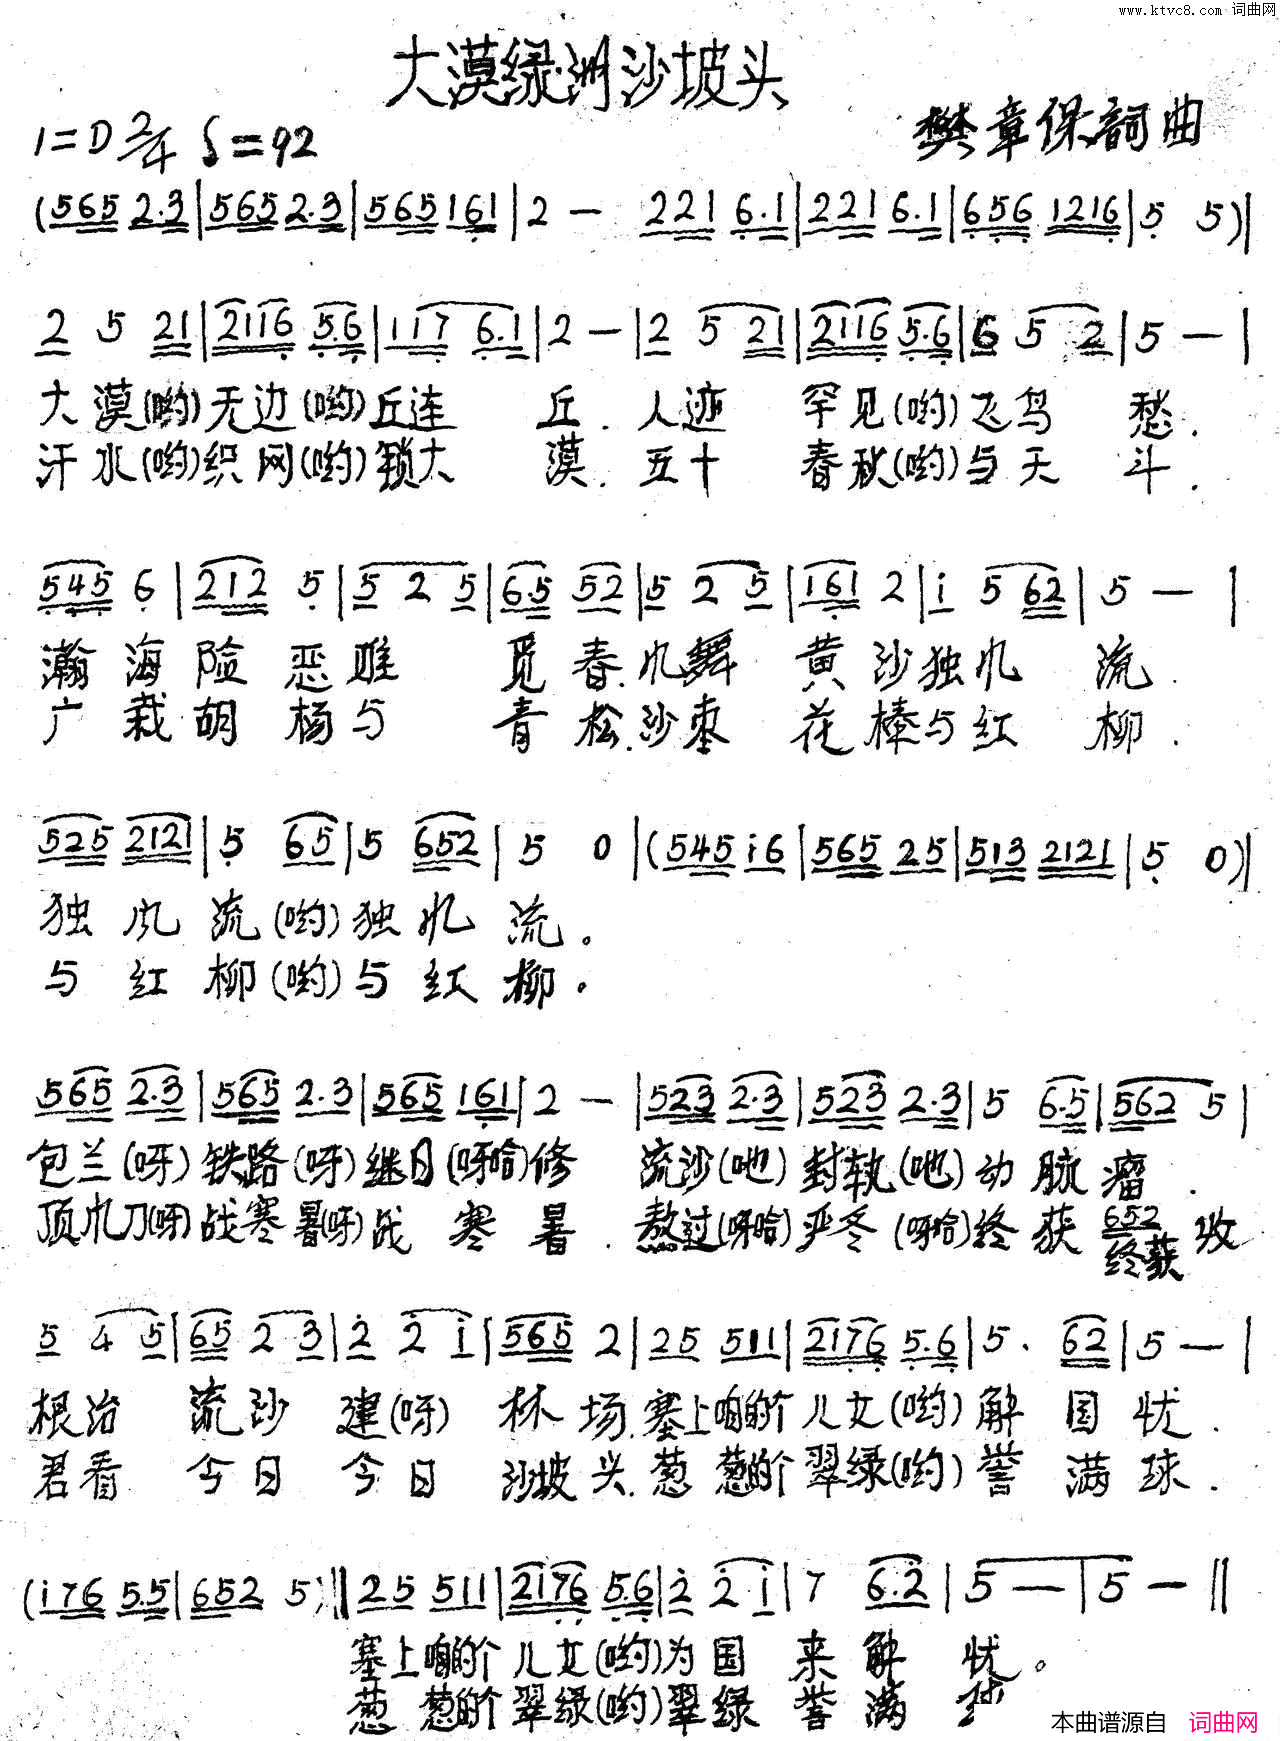 www.ktvc8.com 词曲网
大漠绿洲沙坡头
1=D 2/4 ♩=92 樊章保詞曲
(565 2.3|565 2.3|565 161|2 — 221 6.1|221 6.1|656 1216|5 5)|
2 5 21|2116 5.6|117 6.1|2 —|2 5 21|2116 5.6|6 5 2|5 —|
大漠(哟)无边(哟)丘连 丘.人迹 罕见(哟)飞鸟 愁.
汗水(哟)织网(哟)锁大 漠.五十 春秋(哟)与天 斗.
545 6|212 5|5 2 5|6.5 52|5 2 5|161 2|i 5 62|5 —|
瀚海险恶难 觅春.风舞 黄沙独风 流.
广栽胡杨与 青松.沙枣 花棒与红 柳.
525 2121|5 65|5 652|5 0|(545 i6|565 25|513 2121|5 0)|
独风流(哟)独风流。
与红柳(哟)与红柳。
565 2.3|565 2.3|565 161|2 —|523 2.3|523 2.3|5 6.5|562 5|
包兰(呀)铁路(呀)继日(呀哈)修 流沙(吔)封轨(吔)动脉瘤.
顶风刀(呀)战寒暑(呀)战寒暑.熬过(呀哈)严冬(呀哈)终获 652 收
终获
5 4 5|65 2 3|2 2 i|565 2|25 511|2176 5.6|5. 62|5 —|
根治 流沙 建(呀) 林场.塞上咱的个儿女(哟)解国忧.
君看 今日 今日 沙坡头.葱葱的个翠绿(哟)誉满球.
(i76 5.5|652 5)‖25 511|2176 5.6|2 2 i|7 6.2|5 —|5 —‖
塞上咱的个儿女(哟)为国 来解 忧。
葱葱的个翠绿(哟)翠绿 誉满
本曲谱源自 词曲网